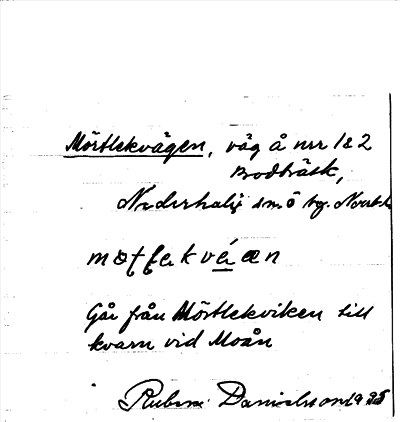 Mörtlekvägen, väg å nrr 1 & 2
Brodträsk,
Nederkalix sn Ö
Går från Mörtlekviken till
kvarn vid Moån
Ruben Danielsson 1935